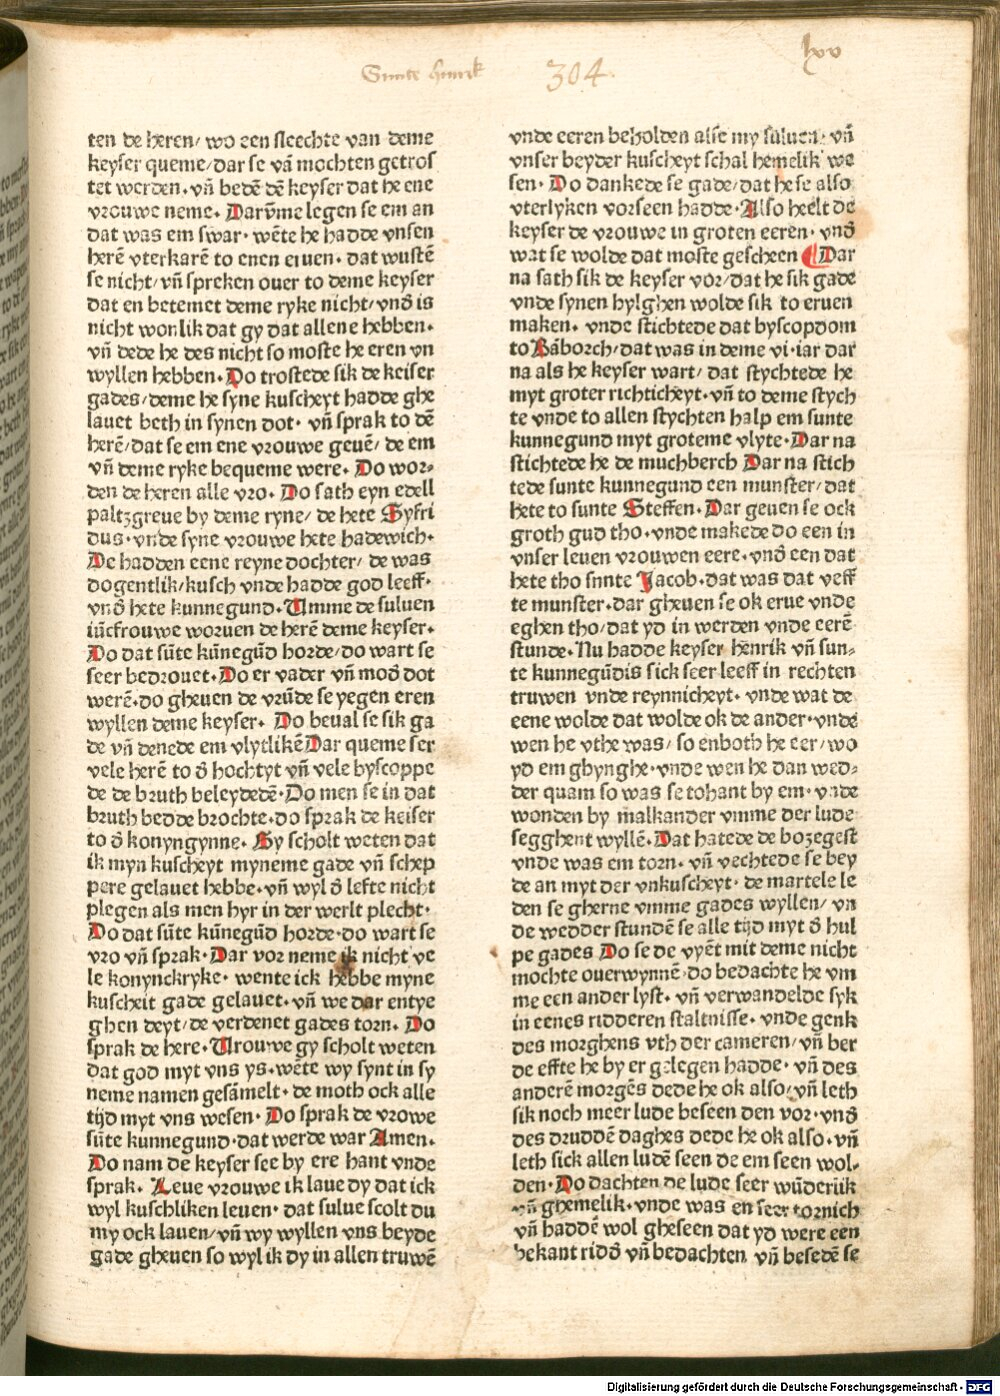 Sunte hinrik 304 lxv
ten de heren/ wo een sleechte van deme
keyser queme/dar se vā mochten getros
tet werden. vn̄ bedē dē keyser dat he ene
vrouwe neme. Darūme legen se em an
dat was em swar. wēte he hadde vnsen
herē vterkarē to enen eruen. dat wustē
se nicht/ vn̄ spreken ouer to deme keyser
dat en betemet deme ryke nicht/ vnd̄ is
nicht wonlik dat gy dat allene hebben.
vn̄ dede he des nicht so moste he eren vn
wyllen hebben. Do trostede sik de keiser
gades/deme he syne kuscheyt hadde ghe
lauet beth in synen dot. vn̄ sprak to dē
herē/dat se em ene vrouwe geuē/ de em
vn̄ deme ryke bequeme were. Do wor-
den de heren alle vro. Do sath eyn edell
paltzgreue by deme ryne/ de hete Syfri
dus. vnde syne vrouwe hete hadewich.
De hadden eene reyne dochter/ de was
dogentlik/kusch vnde hadde god leeff.
vnd̄ hete kunnegund. Umme de suluen
iūcfrouwe woruen de herē deme keyser.
Do dat sūte kūnegūd horde/do wart se
seer bedrouet. Do er vader vn̄ mod̄ dot
werē.do gheuen de vrūde se yegen eren
wyllen deme keyser. Do beual se sik ga
de vn̄ denede em vlytlikē Dar queme ser
vele herē to d̄ hochtyt vn̄ vele byscoppe
de de bruth beleydedē. Do men se in dat
bruth bedde brochte.do sprak de keiser
to d̄ konyngynne. Gy scholt weten dat
ik myn kuscheyt myneme gade vn̄ schep
pere gelauet hebbe.vn̄ wyl d̄ lefte nicht
plegen als men hyr in der werlt plecht.
Do dat sūte kūnegūd horde.do wart se
vro vn̄ sprak. Dar vor neme ik nicht ve
le konynckryke. wente ick hebbe myne
kuscheit gade gelauet. vn̄ we dar entye
ghen deyt/de verdenet gades torn. Do
sprak de here. Urouwe gy scholt weten
dat god myt vns ys. wēte wy synt in sy
neme namen gesāmelt. de moth ock alle
tijd myt vns wesen. Do sprak de vrowe
sūte kunnegund.dat werde war Amen.
Do nam de keyser see by ere hant vnde
sprak. Leue vrouwe ik laue dy dat ick
wyl kuschliken leuen. dat sulue scolt du
my ock lauen/vn̄ wy wyllen vns beyde
gade gheuen so wyl ik dy in allen truwē
vnde eeren beholden alse my suluen. vn̄
vnser beyder kuscheyt schal hemelik we
sen. Do dankede se gade/dat he se also
vterlyken vorseen hadde. Also heelt de
keyser de vrouwe in groten eeren. vnd̄
wat se wolde dat moste gescheen Dar
na sath sik de keyser vor/dat he sik gade
vnde synen hylghen wolde sik to eruen
maken. vnde stichtede dat byscopdom
to Bāborch/dat was in deme vi.iar dar
na als he keyser wart/ dat stychtede he
myt groter richticheyt. vn̄ to deme stych
te vnde to allen stychten halp em sunte
kunnegund myt groteme vlyte. Dar na
stichtede he de muchberch Dar na stich
tede sunte kunnegund een munster/dat
hete to sunte Steffen. Dar geuen se ock
groth gud tho. vnde makede do een in
vnser leuen vrouwen eere. vnd̄ een dat
hete tho snnte Jacob.dat was dat veff
te munster.dar gheuen se ok erue vnde
eghen tho/dat yd in werden vnde eerē
stunde. Nu hadde keyser hēnrik vn̄ sun-
te kunnegūdis sick seer leeff in rechten
truwen vnde reynnicheyt. vnde wat de
eene wolde dat wolde ok de ander.vnde
wen he vthe was/so enboth he eer/wo
yd em ghynghe.vnde wen he dan wed-
der quam so was se tohant by em. vnde
wonden by malkander vmme der lude
segghent wyllē. Dat hatede de bozegest
vnde was em torn. vn̄ vechtede se bey
de an myt der vnkuscheyt. de martele le
den se gherne vmme gades wyllen/ vn
de wedder stundē se alle tijd myt d̄ hul
pe gades Do se de vyēt mit deme nicht
mochte ouerwynnē.do bedachte he vm
me een ander lyst. vn̄ verwandelde syk
in eenes ridderen staltnisse. vnde genk
des morghens vth der cameren/vn̄ ber
de effte he by er gelegen hadde. vn̄ des
anderē morgēs dede he ok also/vn̄ leth
sik noch meer lude beseen den vor.vnd̄
des druddē daghes dede he ok also.vn̄
leth sick allen ludē seen de em seen wol-
den. Do dachten de lude seer wūderlik
vn̄ ghemelik. vnde was en seer tornich
vn̄ haddē wol gheseen dat yd were een
bekant ridd̄ vn̄ bedachten vn̄ besedē se
Digitalisierung gefördert durch die Deutsche Forschungsgemeinschaft - DFG